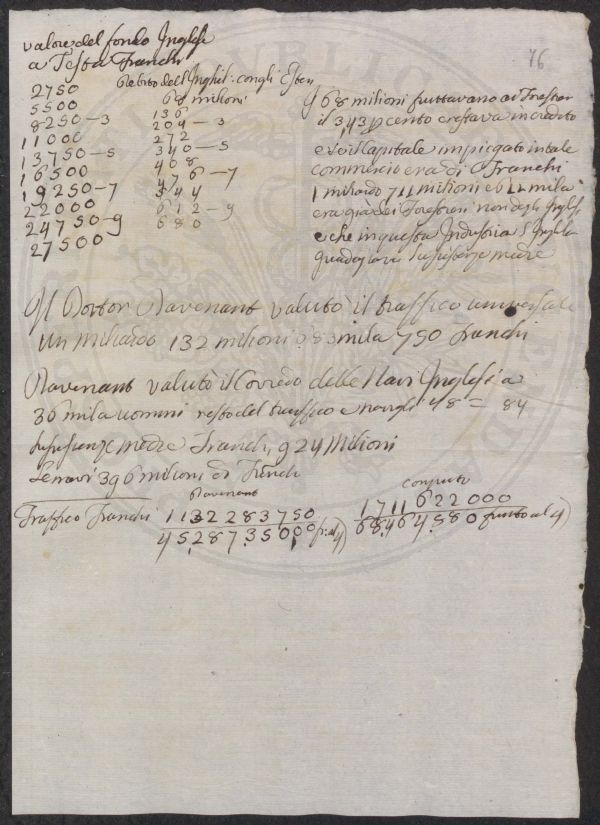 76
valore del fondo Inglese
a Testa Franchi
2750
5500
8250-3
11000
13750-5
16500
19250-7
22000
24750-9
27500
Debito dell'Inghil: con gli Esteri
68 milioni
136
204-3
272
340-5
408
476-7
544
612-9
680
I 68 milioni fruttavano ai Forestier
il 3,43 p cento e restava in credito
e se il Capitale impiegato in tale
commercio era di Franchi
1 miliardo 711 milioni e 622 mila
era già dei Forestieri non degli Inglesi
e che in questa Industria l'Inghilt
guadagnava sussistenze medie
Il Dottor Davenant valutò il traffico universale
un miliardo 132 milioni 283 mila 750 Franchi
Davenant valutò il Corredo delle Navi Inglesi a
36 mila uomini resto del traffico e 48 = 84
sussistenze medie Franchi 924 Milioni
Le navi 396 milioni di Franchi
Davenant
Traffico Franchi 1132283750
45,287,35000 fr: al 4)
computo
1711622000
68,46,4,880 frutto al 4)
REPVBLICA